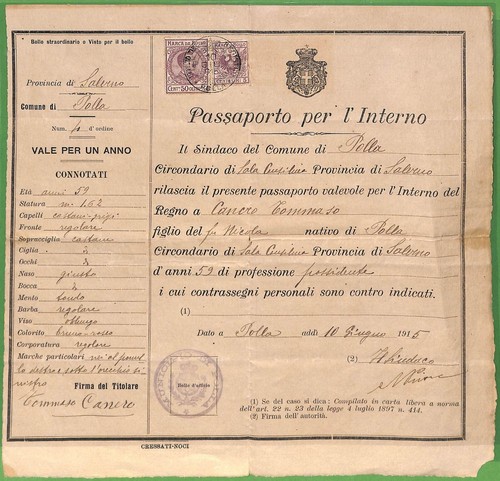 Bollo straordinario o Visto per il bollo
Provincia di Salerno
Comune di Polla
Num. d'ordine
VALE PER UN ANNO
CONNOTATI
Età anni 59
Statura m. 1.62
Capelli castani-grigi
Fronte regolare
Sopracciglia castane
Ciglia
Occhi
Naso giusto
Bocca
Mento tondo
Barba regolare
Viso oblungo
Colorito bruno-roseo
Corporatura regolare
Marche particolari nei al pomel
lo destro e sotto l'orecchio si
nistro
Firma del Titolare
Tommaso Cancro
MARCA DA BOLLO
CENT. 50
Passaporto per l'Interno
Il Sindaco del Comune di Polla
Circondario di Sala Consilina Provincia di Salerno
rilascia il presente passaporto valevole per l'Interno del
Regno a Cancro Tommaso
figlio del fu Nicola nativo di Polla
Circondario di Sala Consilina Provincia di Salerno
d'anni 59 di professione possidente
i cui contrassegni personali sono contro indicati.
(1)
Dato a Polla addì 10 Giugno 1915
(2) Il Sindaco
Bollo d'ufficio
(1) Se del caso si dica: Compilato in carta libera a norma
dell'art. 22 n. 23 della legge 4 luglio 1897 n. 414.
(2) Firma dell'autorità.
CRESSATI-NOCI